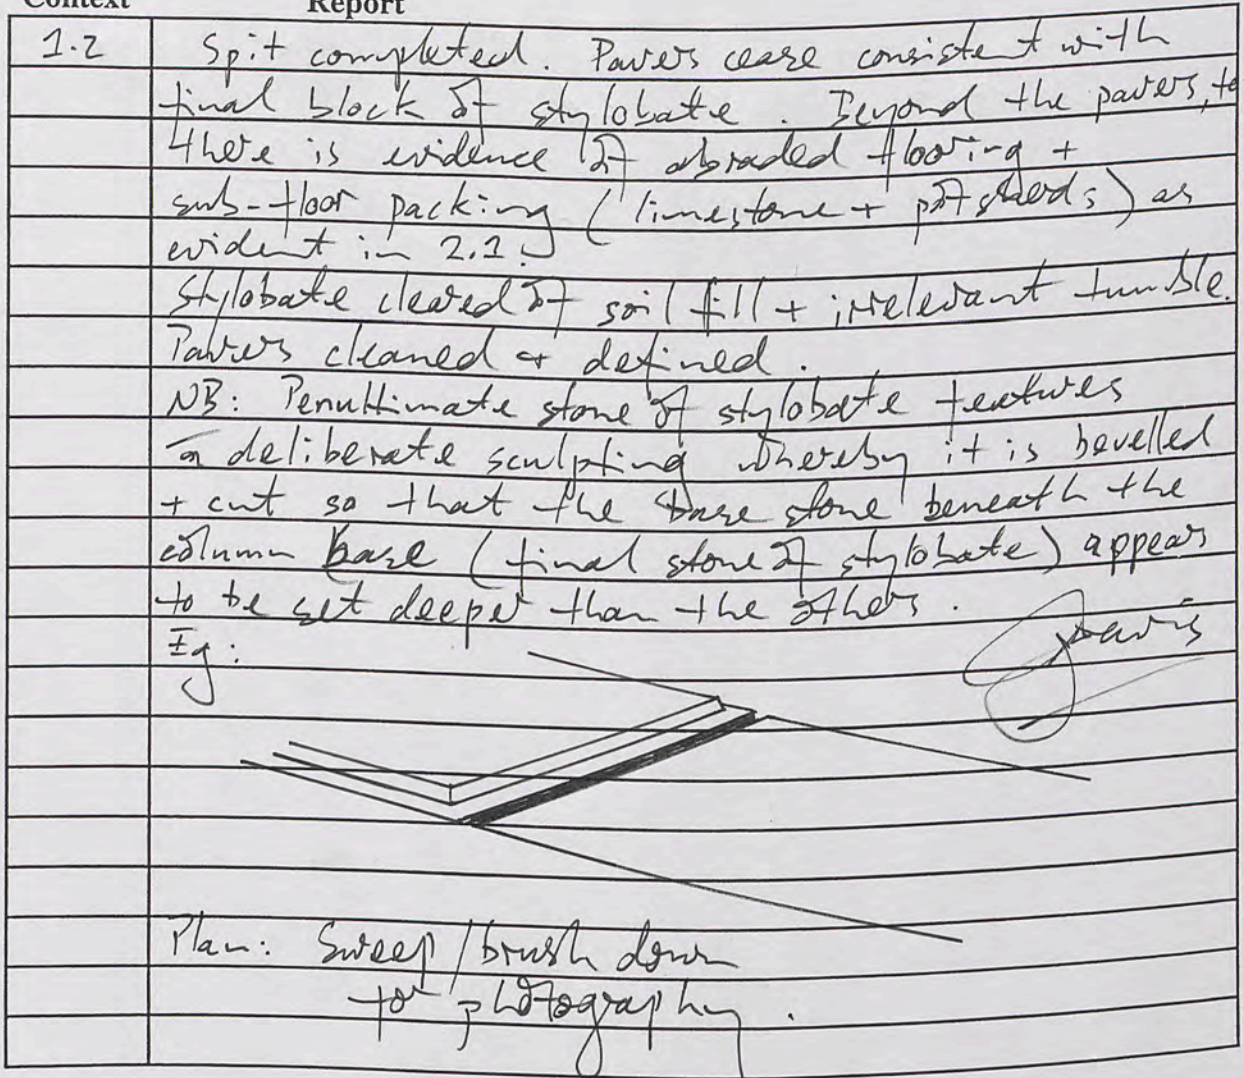 Context Report
1.2 Spit completed. Pavers cease consistent with
final block of stylobate. Beyond the pavers, to
there is evidence of abraded flooring +
sub-floor packing (limestone + potsherds) as
evident in 2.1.
Stylobate cleared of soil fill + irrelevant tumble.
Pavers cleaned + defined.
NB: Penultimate stone of stylobate features
a deliberate sculpting whereby it is bevelled
+ cut so that the base stone beneath the
column base (final stone of stylobate) appears
to be set deeper than the others.
Eg:
Plan: Sweep/brush down
for photography.